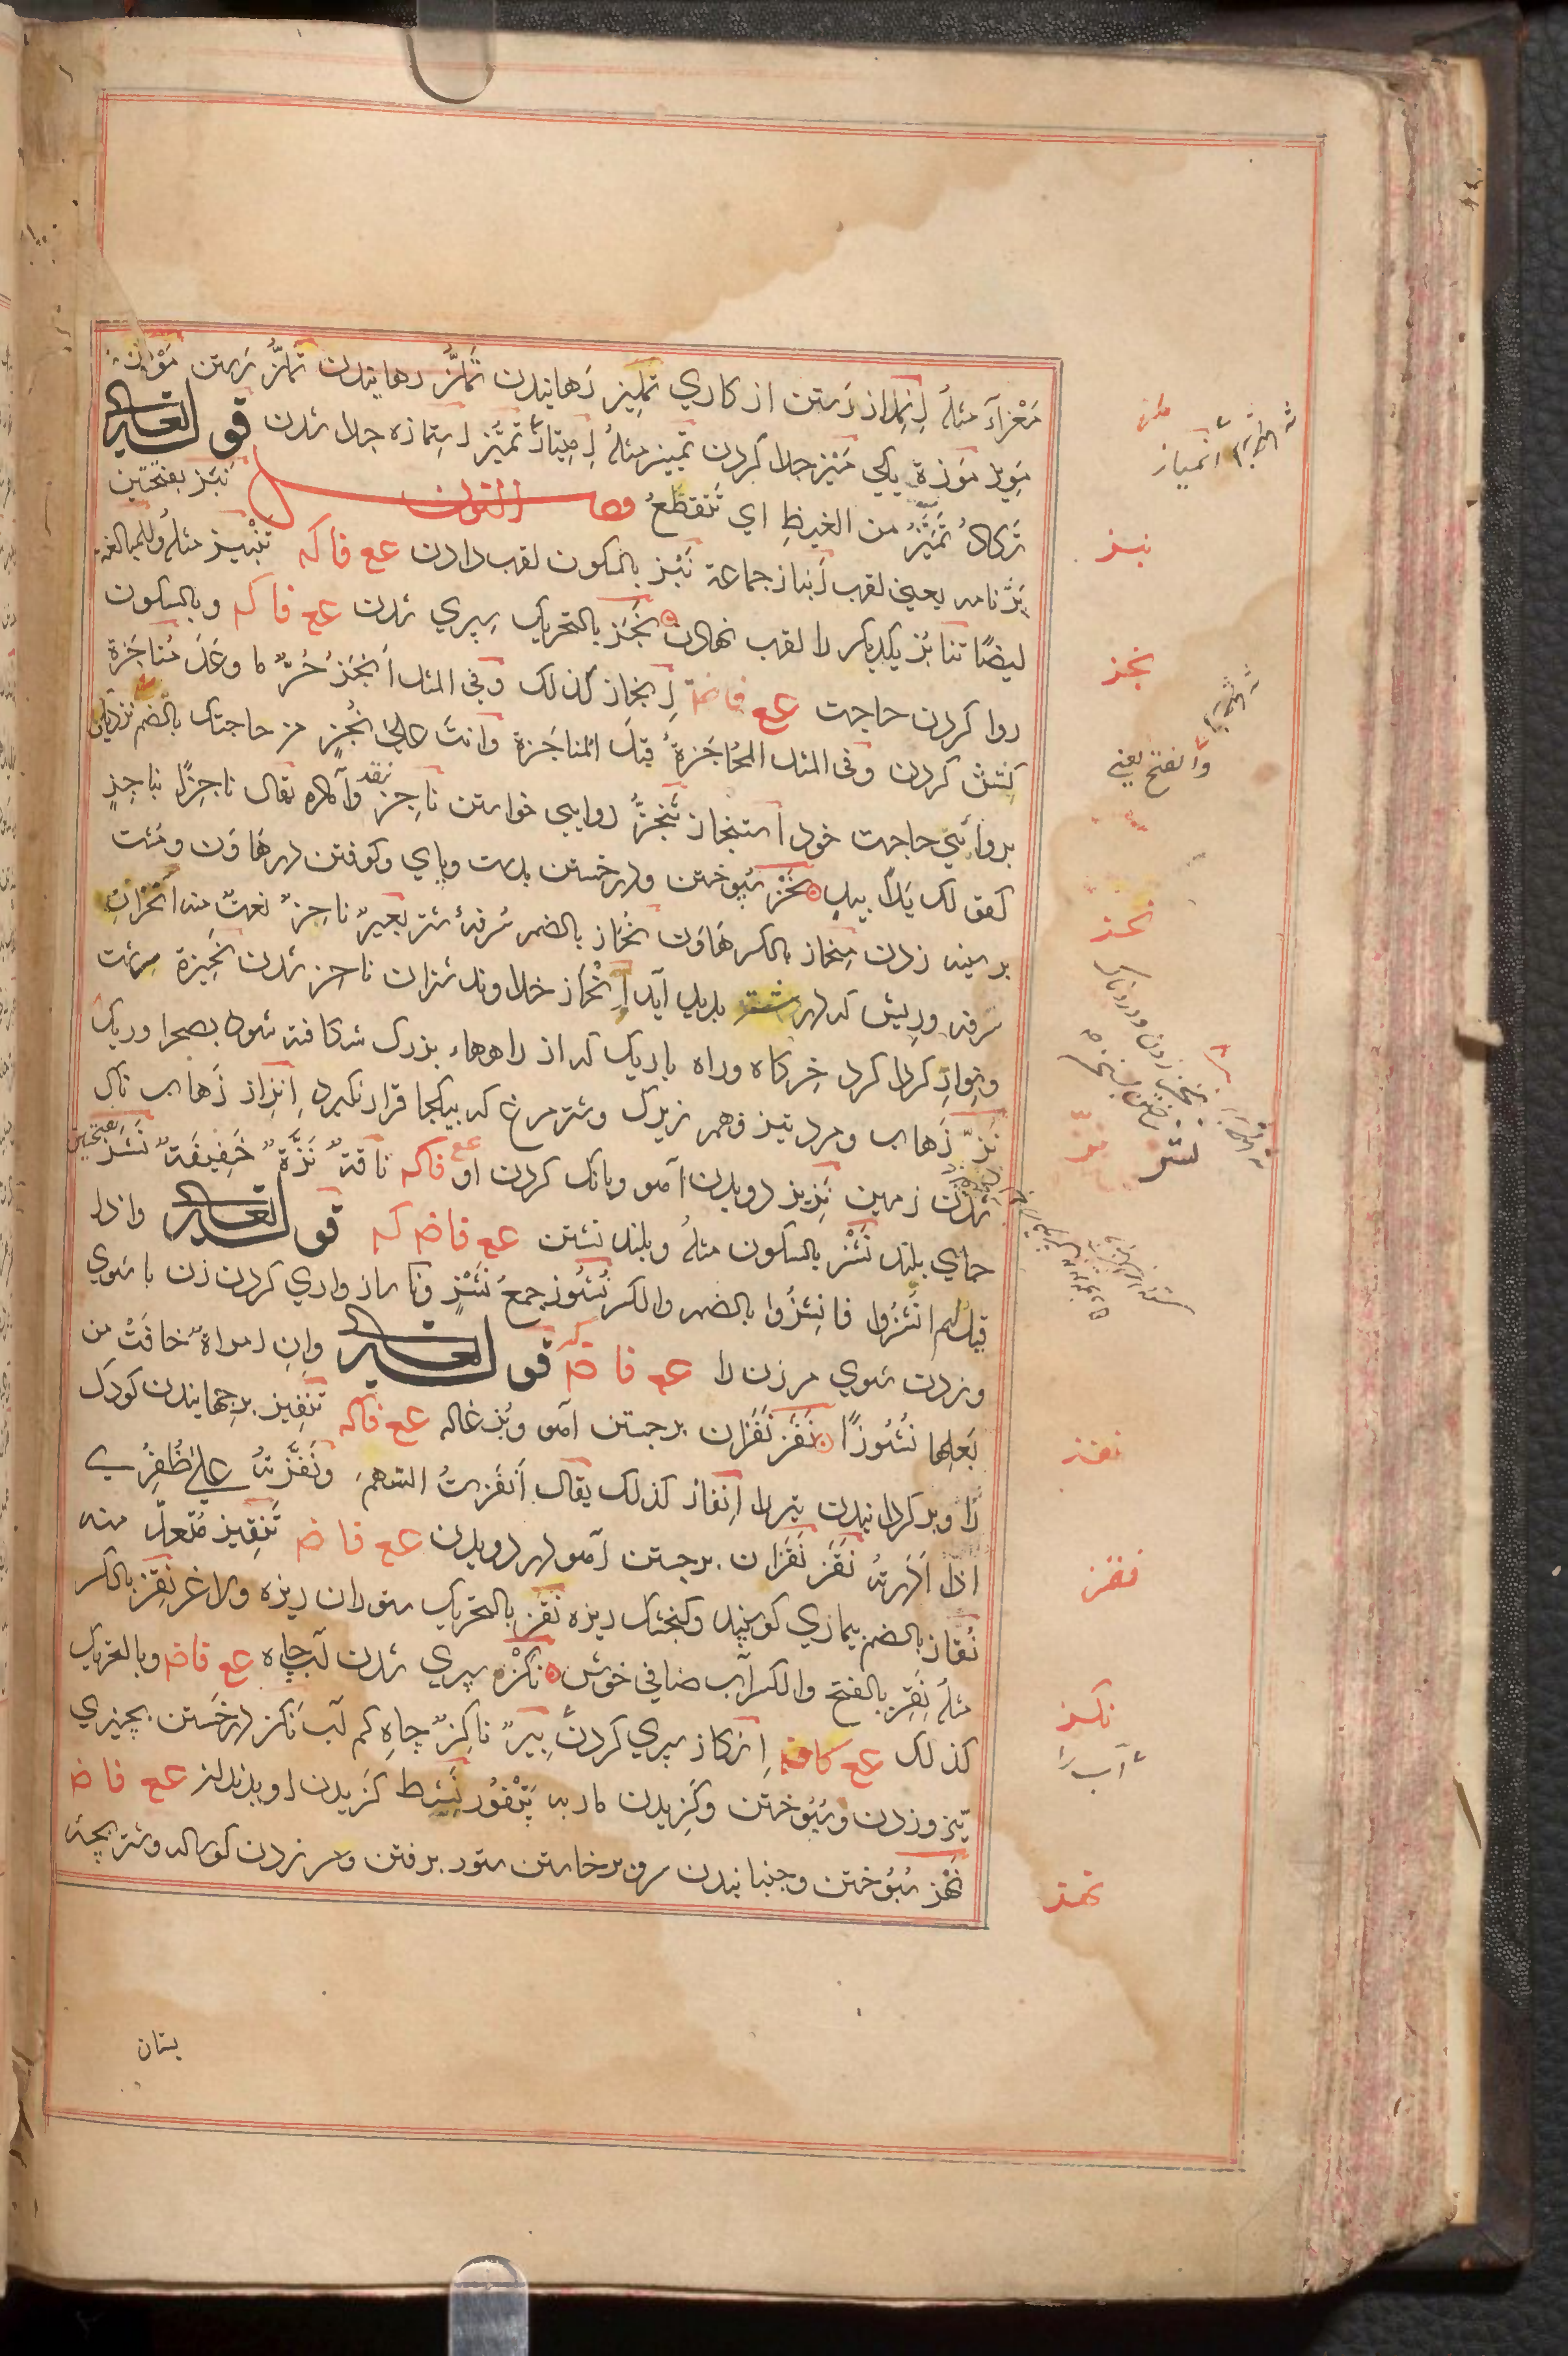 مَعْزَآءَ مثلهُ اِنْمِلاز رَستن از کاري تملیز رَهانیدن تَمَلُّز رهانیدن تَمَلُّز رَستن مَوْز
مَوِیز مَوْزة یکی مَیْز جدا کردن تَمییز مثلهُ اِمِتیاز تَمَیُّز اِستمازه جدا شدن قوله تعالى
تَکَادُ تَمَیَّزُ من الغیظِ اي تَتَقَطَّعُ فصل النون نَبَز بفتحتین
پَژنامه یعني لقب اَنباز جماعة نَبْز بالسکون لقب دادن ع ع فا که تَنْبیز مثلهُ وللمبالغة
ایضًا تنابُز یکدیکر را لقب نهادن نَجَز بالتحریک سپري شدن ع ع فا که وبالسکون
روا کردن حاجت ع ع فا ضمة اِنجاز کذلک وفي المثل اَنْجَزَ حُرٌّ ما وَعَدَ مُناجَزة
کِشش کردن وفي المثل المُحاجَزةُ قبلَ المُناجَزة وانتَ علی نُجْزٍ من حاجتک بالضم نزدیکی
بروائي حاجت خود استنجاز تَنَجُّز روایي خواستن ناجز نقد وآماده یقال ناجِزًا بناجِزٍ
کقولک یَدًا بیدٍ نَحْز سُپوختن ودرخستن بدست وپاي وکوفتن در هاوَن ومُشت
بر سینه زدن مِنحاز بالکسر هاوَن نُحاز بالضم سُرفۀ شتر بعیرٌ ناحِزٌ نعتٌ منه
سرفه وریش که در شُشِ شتر پدید آید اِنْحاز خداوند شتران ناحز شدن نَحیزة سرشت
ونِوارِ کرداکرد خِرکاه وراه باریک که از راهها بزرک شکافته شود بصحرا وریک
نَزّ زَهاب ومرد تیز فهم زیرک وشترمرغ که بیکجا قرار نکیرد اِنْزاز زَهاب ناک
شُدَنِ زمین نَزیز دویدن آهو وبانک کردن او ع ع فا که ناقةٌ نَزَّةٌ خَفِیفَةٌ نَشَز بفتحتین
جاي بلند نَشْز بالسکون مثلهُ وبلند نشستن ع ع فا ضم که قوله تعالى واذا
قیل لهم انْشُزُوا فانشُزُوا بالضم والکسر نُشوز جمعُ نَشْزٍ وناسازواري کردن زن با شوي
وزدن شوي مر زن را ع ع فا ضم که قوله تعالى وان امراةٌ خافَتْ من
بَعلِها نُشُوزًا نَفْز نَفَزان برجستن آهو وبُزغاله ع ع فا که تَنْفِیز برجهانیدن کودک
را وبرکردانیدن تیر را اِنْفاز کذلک یقال اَنْفَزتُ السَّهمَ ونَفَّزتُهُ علی ظُفُري
اذا اَدَرتَهُ نَقْز نَقَزان برجستن آهو در دویدن ع ع فا ضم تَنْقِیز مُتعدٍّ منه
نُقاز بالضم بیماري کوسپند وکنجشک ریزه نَقَز بالتحریک ستوران ریزه ولاغر نِقْز بالکسر
مثلهُ نِقْز بالفتح والکسر آب صافي خوش نَکْزه سپري شدن آب چاه ع ع فا ضم وبالتحریک
کذلک ع ع کافه اِنْکاز سپري کردن بِیرٌ ناکِزٌ چاهِ کم آب نَکْز درخَستن بچیزي
تیز وزدن وسُپُوختن وکَزیدن مار به پَتْفُوز نَشط کَزیدن او بدندان ع ع فا ضم
نَهْز سُپُوختن وجنبانیدن سر وبرخاستن ستور برفتن وسر زدن کوساله وشتر بچه
بستان
انمیاز
نبز
نجز
وَاَنفَتَحَ یعني
نحز
نشز
نزّ
نفز
نقز
نکز
آب را
نهز